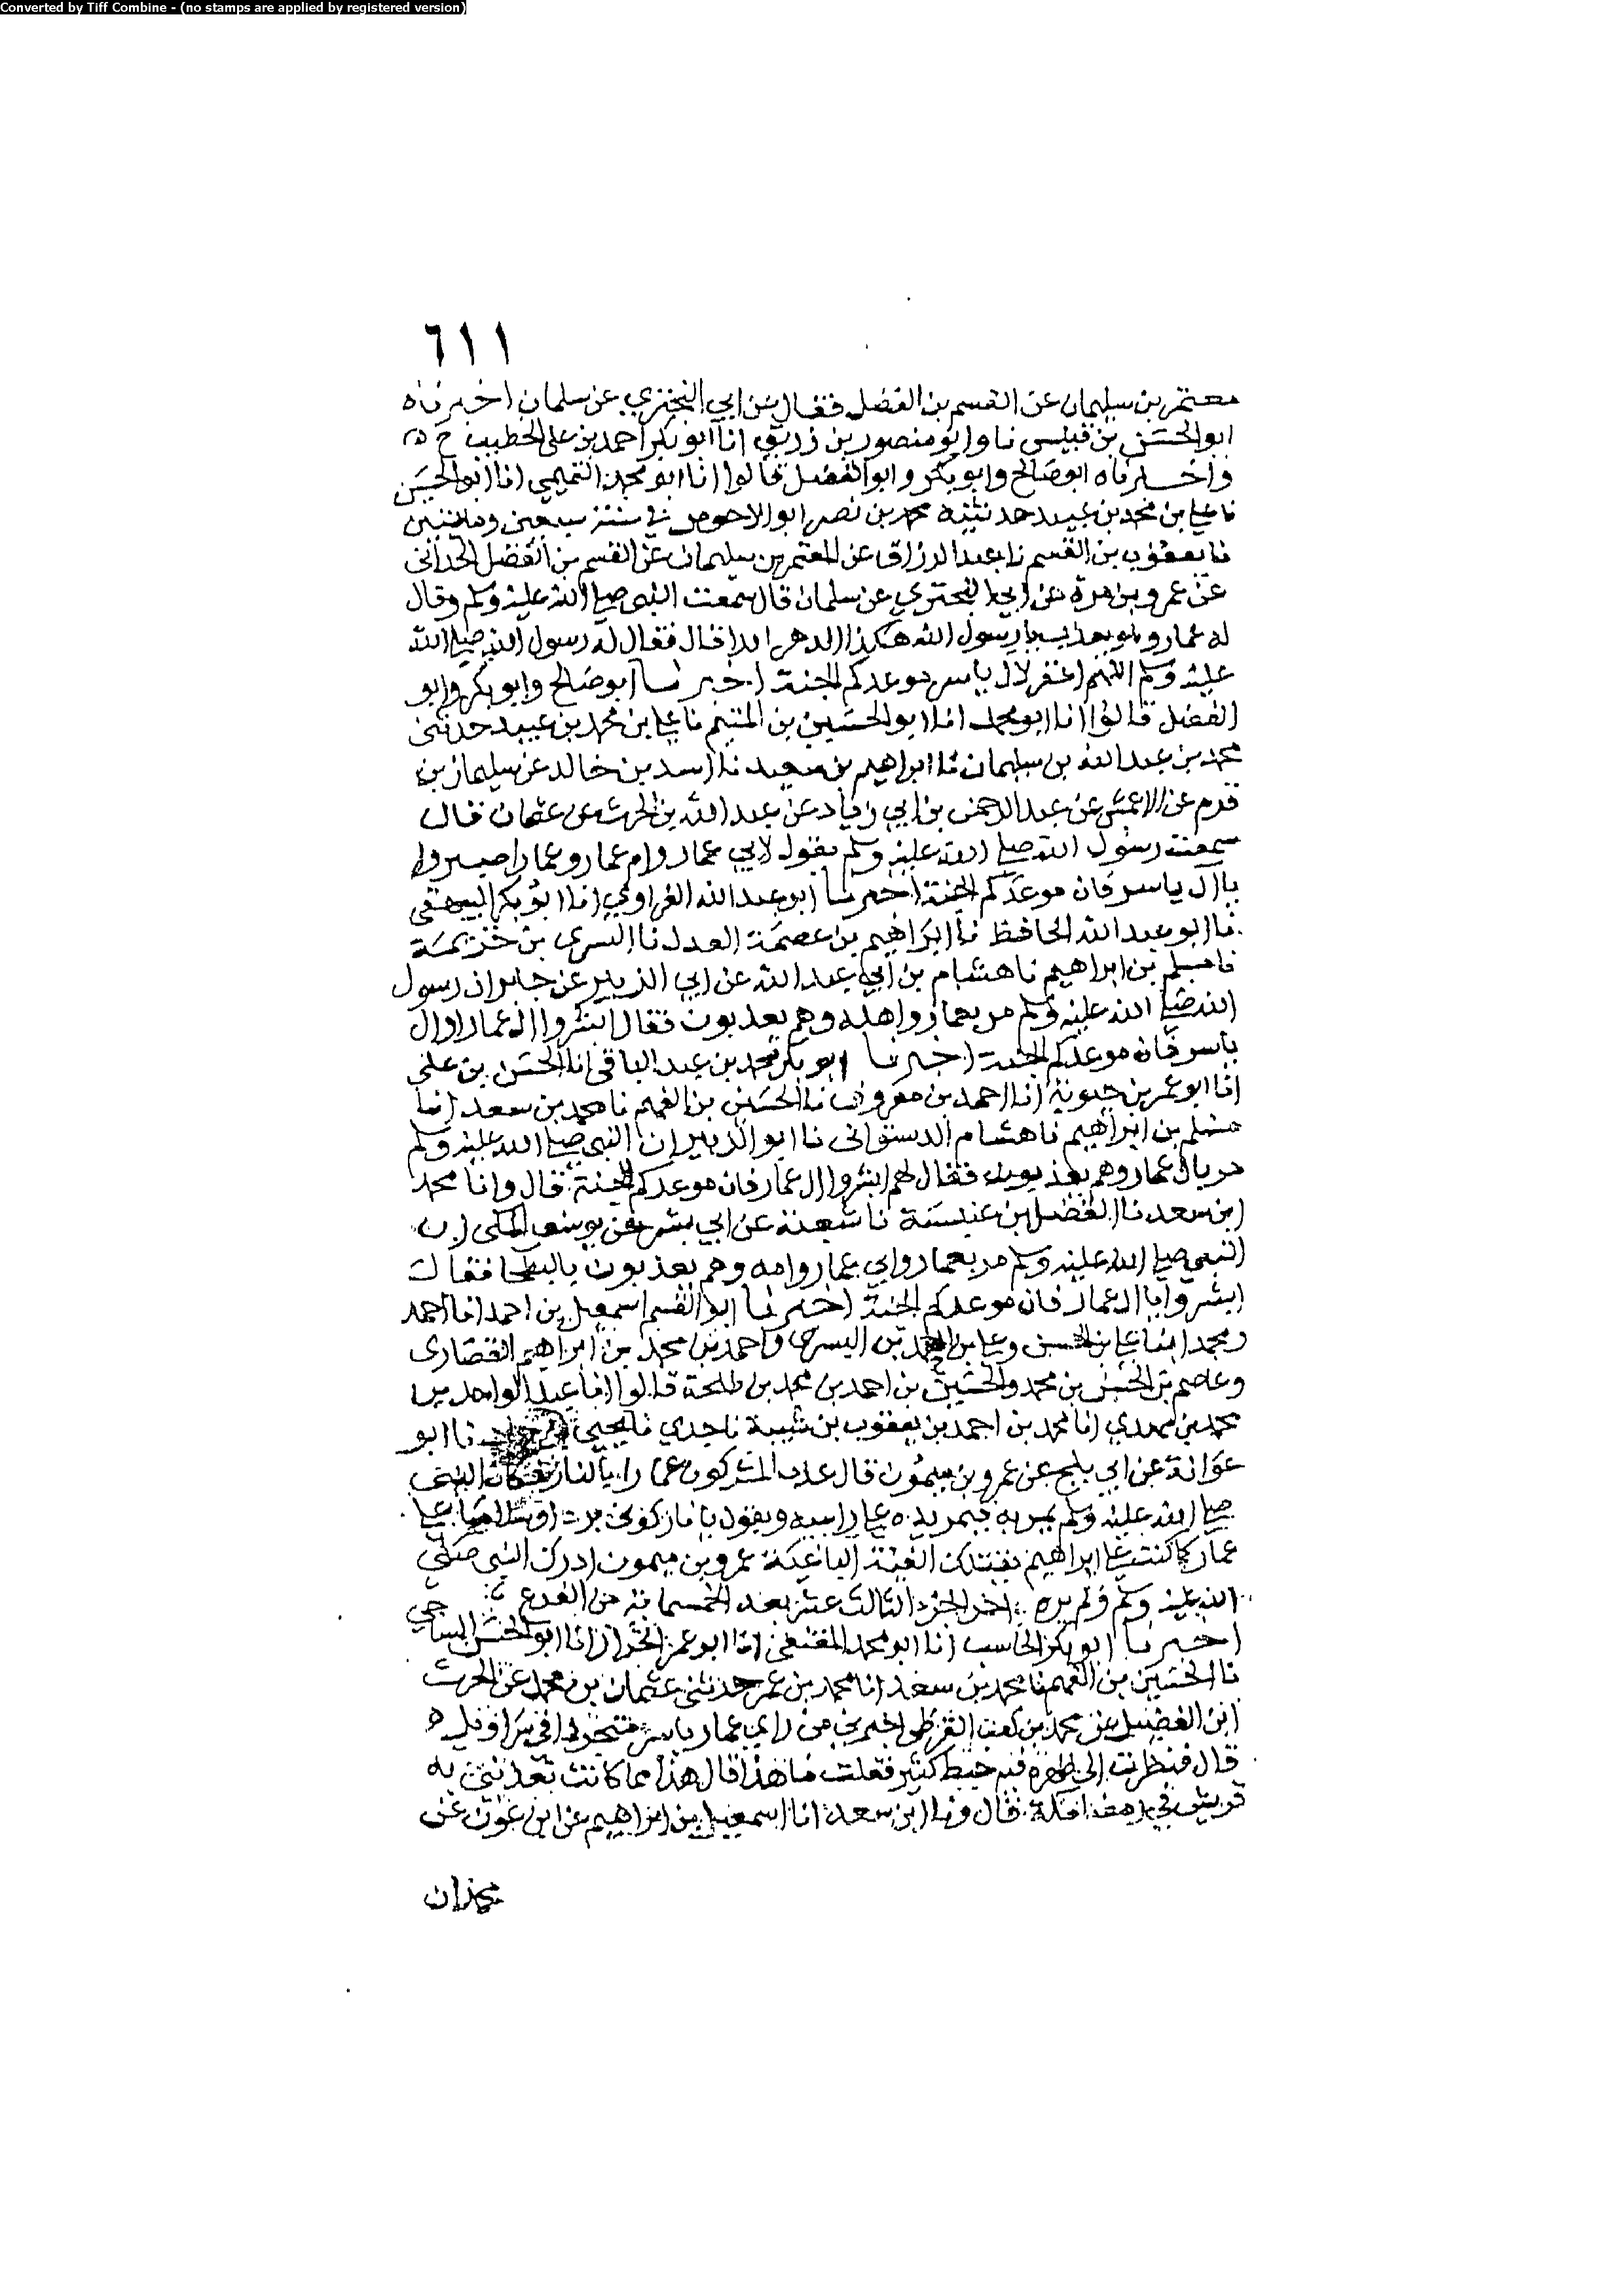 Converted by Tiff Combine - (no stamps are applied by registered version)
٦١١
معتمر بن سليمان عن القسم بن الفضل فقال عن ابي البختري عن سلمان اخبرناه
ابو الحسن بن قبيس نا وابو منصور بن زريق انا ابو بكر احمد بن علي الخطيب ح
واخبرناه ابو صالح وابو بكر وابو الفضل قالوا انا ابو محمد التميمي انا ابو الحسين
نا علي بن محمد بن عبيد حدثنيه محمد بن نصر ابو الاحوص في سنة سبعين ومائتين
نا يعقوب بن القسم نا عبد الرزاق عن المعتمر بن سليمان عن القسم بن الفضل الحداني
عن عمرو بن مرة عن ابي البختري عن سلمان قال سمعت النبي صلى الله عليه وسلم وقال
له عمار وهو يعذب يا رسول الله هكذا الدهر ابدا قال فقال له رسول الله صلى الله
عليه وسلم اللهم اغفر لال ياسر موعدكم الجنة اخبرنا ابو صالح وابو بكر وابو
الفضل قالوا انا ابو محمد انا ابو الحسين بن المتيم نا علي بن محمد بن عبيد حدثني
محمد بن عبد الله بن سليمان نا ابراهيم بن سعيد نا اسد بن خالد عن سليمان بن
قرم عن الاعمش عن عبد الرحمن بن ابي زياد عن عبد الله بن الحرث عن عثمان قال
سمعت رسول الله صلى الله عليه وسلم يقول لابي عمار وام عمار وعمار اصبروا
يا ال ياسر فان موعدكم الجنة اخبرنا ابو عبد الله الفراوي انا ابو بكر البيهقي
نا ابو عبد الله الحافظ نا ابراهيم بن عصمة العدل نا السري بن خزيمة
نا مسلم بن ابراهيم نا هشام بن ابي عبد الله عن ابي الزبير عن جابر ان رسول
الله صلى الله عليه وسلم مر بعمار واهله وهم يعذبون فقال ابشروا ال عمار اوال
ياسر فان موعدكم الجنة اخبرنا ابو بكر محمد بن عبد الباقي انا الحسن بن علي
انا ابو عمر بن حيوية انا احمد بن معروف نا الحسين بن الفهم نا محمد بن سعد انا
مسلم بن ابراهيم نا هشام الدستوائي نا ابو الزبير ان النبي صلى الله عليه وسلم
مر بال عمار وهم يعذبون فقال لهم ابشروا ال عمار فان موعدكم الجنة قال وانا محمد
ابن سعد نا الفضل بن عنبسة نا شعبة عن ابي بشر عن يوسف المكي ان
النبي صلى الله عليه وسلم مر بعمار وابي عمار وامه وهم يعذبون بالبطحا فقال
ابشروا يا ال عمار فان موعدكم الجنة اخبرنا ابو القسم اسمعيل بن احمد انا احمد
ومحمد ابنا علي بن الحسن وعلي بن محمد بن البسري واحمد بن محمد بن ابراهيم القصاري
وعاصم بن الحسن بن محمد والحسين بن احمد بن محمد بن طلحة قالوا انا عبد الواحد بن
محمد بن مهدي انا محمد بن احمد بن يعقوب بن شيبة نا جدي نا يحيى بن حماد نا ابو
عوانة عن ابي بلج عن عمرو بن ميمون قال عذب المشركون عمارا بالنار فكان النبي
صلى الله عليه وسلم يمر به فيمر يده على راسه ويقول يا نار كوني بردا وسلاما على
عمار كما كنت على ابراهيم تقتلك الفئة الباغية عمرو بن ميمون ادرك النبي صلى
الله عليه وسلم ولم يره اخر الجزء الثالث عشر بعد الخمسمائة من الفرع
اخبرنا ابو بكر الحاسب انا ابو محمد المقنعي انا ابو عمر الخزاز انا ابو الحسن الساجي
نا الحسين بن الفهم نا محمد بن سعد انا محمد بن عمر حدثني عثمان بن محمد عن الحرث
ابن الفضيل عن محمد بن كعب القرظي اخبرني من راى عمار ياسر متجردا في سراويل
قال فنظرت الى ظهره فيه حبط كثير فقلت ما هذا قال هذا مما كانت تعذبني به
قريش في رمضا مكة قال ونا ابن سعد انا اسمعيل بن ابراهيم عن ابن عون عن
محمد ان